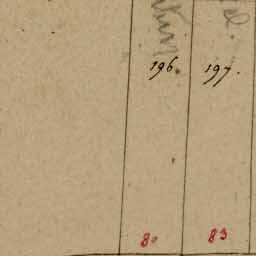 196. 197.
80 83